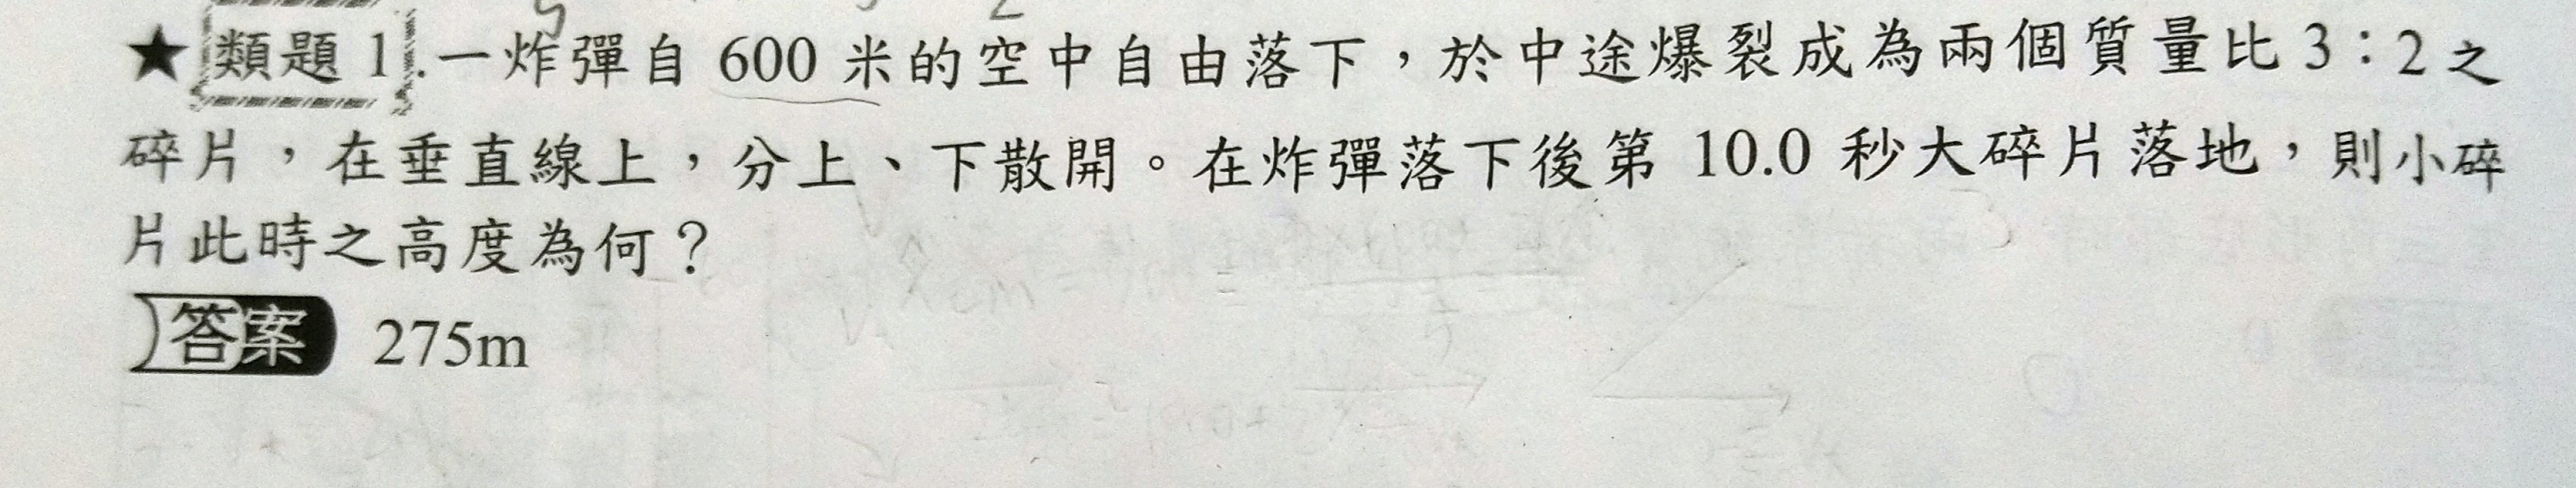 ★類題1.一炸彈自 600 米的空中自由落下，於中途爆裂成為兩個質量比 3：2 之
碎片，在垂直線上，分上、下散開。在炸彈落下後第 10.0 秒大碎片落地，則小碎
片此時之高度為何？
答案 275m